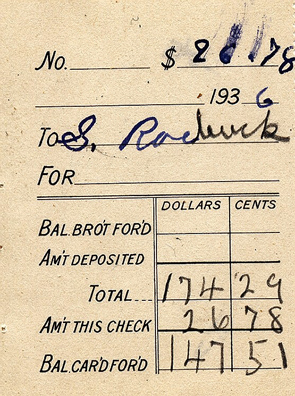 No. $ 26.78
1936
To S. Roebuck
FOR
DOLLARS CENTS
BAL. BRO'T FOR'D
AM'T DEPOSITED
TOTAL.... 174 29
AM'T THIS CHECK 26 78
BAL. CAR'D FOR'D 147 51